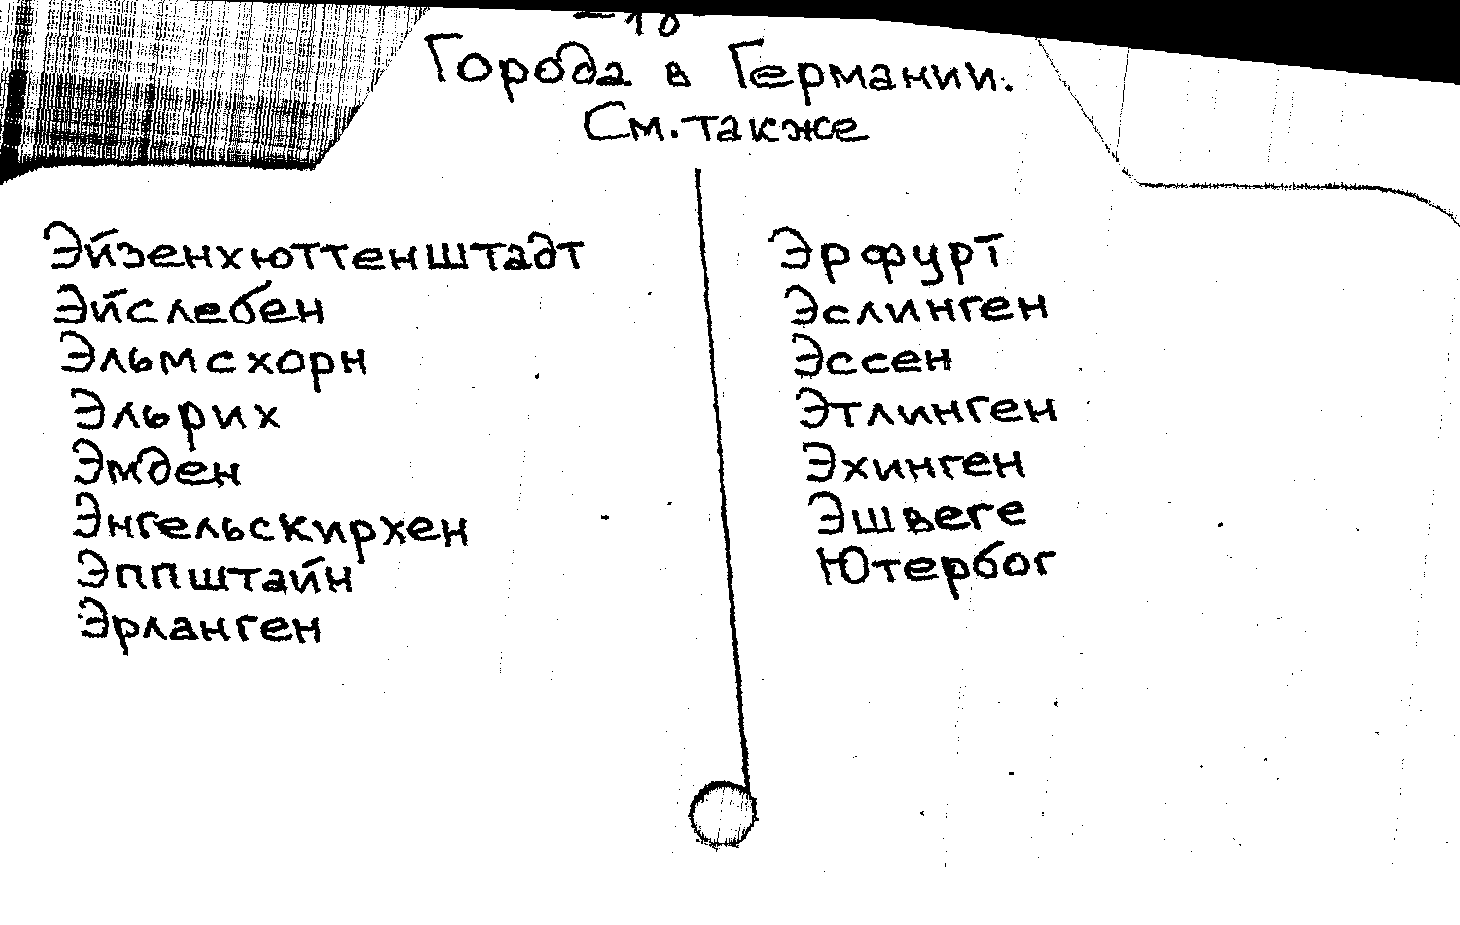 Города в Германии.
См. также
Эйзенхюттенштадт
Эйслебен
Эльмсхорн
Эльрих
Эмден
Энгельскирхен
Эппштайн
Эрланген
Эрфурт
Эслинген
Эссен
Этлинген
Эхинген
Эшвеге
Ютербог